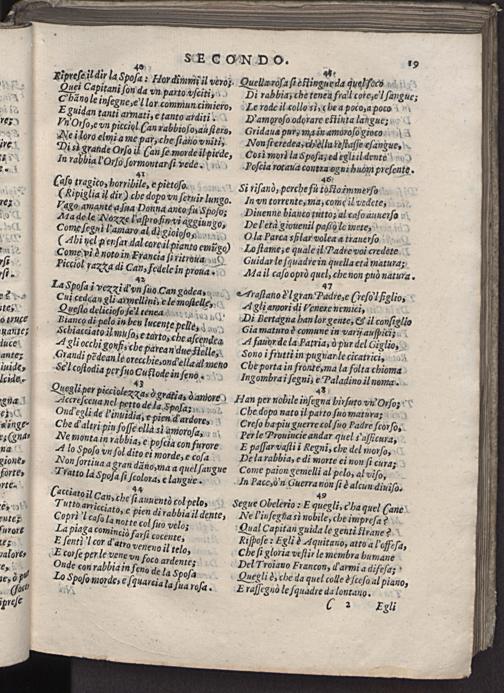 SECONDO. 19
40
Riprese il dir la Sposa: Hor dimmi il vero;
Quei Capitani son da vn parto vsciti,
C'hāno le insegne, e'l lor commun cimiero,
E guidan tanti armati, e tanto arditi
Vn'Orso, e vn picciol Can rabbioso, austero,
Ne i loro elmi a me par, che stiano vniti,
Di sì grande Orso il Can se morde il piede,
In rabbia l'Orso sormontar si vede.
41
Caso tragico, horribile, e pietoso.
(Ripiglia il dir) che dopo vn seruir lungo.
Vago amante a sua Donna anco fu Sposo;
Ma de le Nozze l'aspro fin vi aggiungo,
Come segnì l'amaro al dì gioioso,
(Ahi nel pensar dal core il pianto emūgo)
Come vi è noto in Francia si ritroua
Picciol razza di Can, fedele in proua.
42
La Sposa i vezzi d'vn suo Can godea,
Cui cedean gli armellini, e le mostelle,
Questo delicioso se'l tenea
Bianco di pelo in ben lucente pelle,
Schiacciato il muso, e torto, che ascendea
A gli occhi gonfi, che parean due stelle,
Grandi pēdean le orecchie, ond'ella al meno
Se'l costodia per suo Custode in seno.
43
Quegli per picciolezza, ò gratia, ò amore
Accresceua nel petto de la Sposa;
Ond'egli de l'inuidia, e pien d'ardore,
Che d'altri piu fosse ella sì amorosa,
Ne monta in rabbia, e poscia con furore
A lo Sposo vn sol dito ei morde, e cosa
Non sortìua a gran dāno, ma a quel sangue
Tratto la Sposa si scolora, e langue.
44
Cacciato il Can, che si auuentò col pelo,
Tutto arricciato, e pien di rabbia il dente,
Coprì 'l caso la notte col suo velo;
La piaga cominciò farsi cocente,
E sentì 'l cor d'atro veneno il telo,
E corse per le vene vn foco ardente;
Onde con rabbia in seno de la Sposa
Lo Sposo morde, e squarcia la sua rosa.
45
Quella rosa si estingue da quel foco
Di rabbia, che tenea fra'l core, e'l sangue;
Le rode il collo sì, che a poco, a poco
D'amoroso odorare estinta langue;
Gridaua pur, ma in amoroso gioco
Non se credea, ch'ella restasse esangue,
Così morì la Sposa; ed egli il dente
Poscia rotaua contra ogni huom presente.
46
Si risanò, perche fù tosto immerso
In vn torrente, ma, come il vedete,
Diuenne bianco tutto; al caso auuerso
De l'età giouenil passò le mete,
O la Parca sfilar volea a trauerso
Lo stame; e quale il Padre voi credete
Guidar le squadre in quella età matura;
Ma il caso oprò quel, che non può natura.
47
Arastano è 'l gran Padre, e Creso 'l figlio,
A gli amori di Venere nemici,
Di Bertagna han lor gente, & il consiglio
Gia maturo è comune in varij auspici;
A fauor de la Patria, ò pur del Giglio,
Sono i frutti in pugnar le cicatrici,
Che porta in fronte, ma la folta chioma
Ingombra i segni; e Paladino il noma.
48
Han per nobile insegna hirsuto vn'Orso;
Che dopo nato il parto suo matura;
Creso ha piu guerre col suo Padre scorso,
Per le Prouincie andar quel s'assicura,
E passar vasti i Regni, che del morso,
De la rabbia, e di morte ei non si cura;
Come paion gemelli al pelo, al viso,
In Pace, ò 'n Guerra non fù alcun diuiso.
49
Segue Obelerio: E quegli, c'ha quel Cane
Ne l'insegna sì nobile, che impresa?
Qual Capitan guida le genti strane?
Rispose: Egli è Aquitano, atto a l'offesa,
Che si gloria vestir le membra humane
Del Troiano Francon, d'armi a difesa;
Quegli è, che da quel colle è sceso al piano,
E rassegnò le squadre da lontano.
C 2 Egli